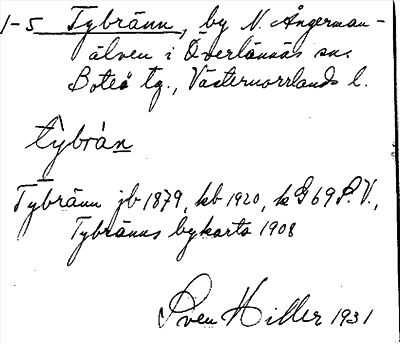 1-5 Tybränn, by N. Ångerman-
älven i Överlännäs sn.
Boteå tg., Västernorrlands l.
tybràn
Tybränn jb 1879, kb 1920, k G 69 P.V.,
Tybränns bykarta 1908
Sven Hiller 1931